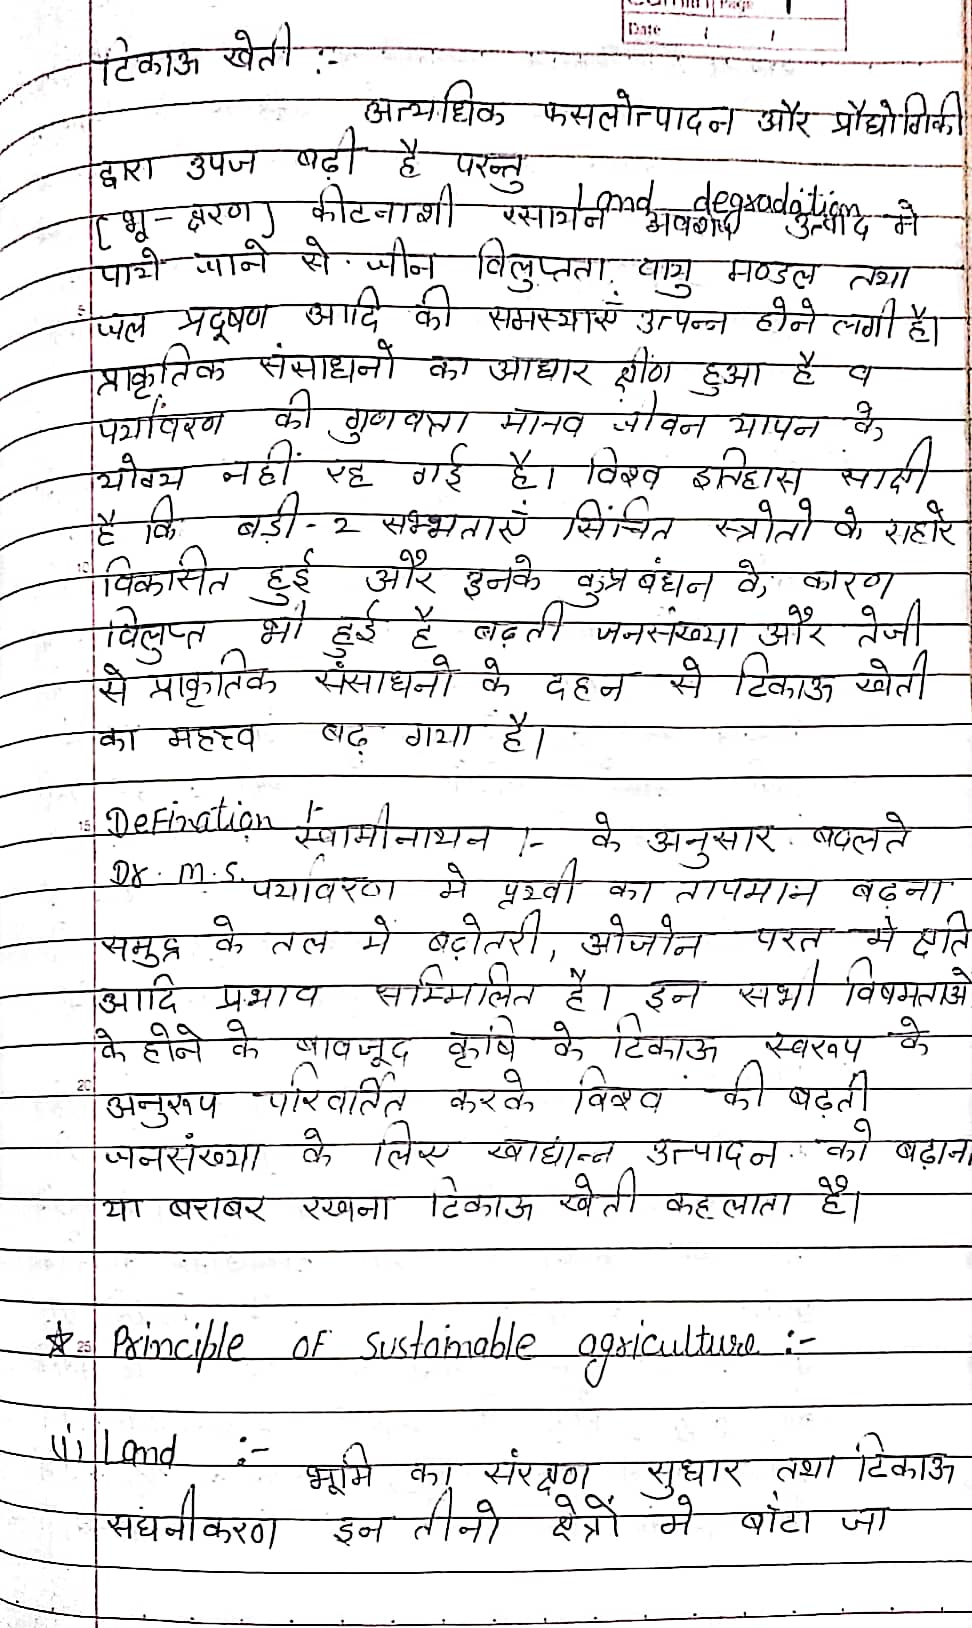 Page
Date
टिकाऊ खेती :-
अत्यधिक फसलोत्पादन और प्रौद्योगिकी
द्वारा उपज बढ़ी है परन्तु
Land degradation
(भू-क्षरण) कीटनाशी रसायन अवशेष उत्पाद मे
पाये जाने से जीन विलुप्तता, वायु मण्डल तथा
जल प्रदूषण आदि की समस्याएँ उत्पन्न होने लगी है।
प्राकृतिक संसाधनों का आधार क्षीण हुआ है व
पर्यावरण की गुणवत्ता मानव जीवन यापन के
योग्य नहीं रह गई है। विश्व इतिहास साक्षी
है कि बड़ी-2 सभ्भताएँ सिंचित स्त्रोतो के सहारे
विकसित हुई और इनके कुप्रबंधन के कारण
विलुप्त भी हुई है बढ़ती जनसंख्या और तेजी
से प्राकृतिक संसाधनो के दहन से टिकाऊ खेती
का महत्त्व बढ़ गया है।
Defination :-
Dr. M.S. स्वामीनाथन :- के अनुसार बदलते
पर्यावरण मे पृथ्वी का तापमान बढ़ना
समुद्र के तल मे बढ़ोतरी, ओजोन परत मे क्षति
आदि प्रभाव सम्मिलित है। इन सभी विषमताओ
के होने के बावजूद कृषि के टिकाऊ स्वरूप के
अनुरूप परिवर्तित करके विश्व की बढ़ती
जनसंख्या के लिए खाद्यान्न उत्पादन को बढ़ाना
या बराबर रखना टिकाऊ खेती कहलाता है।
☆ Principle of sustainable agriculture :-
(i) Land :-
भूमि का संरक्षण सुधार तथा टिकाऊ
सघनीकरण इन तीनो क्षेत्रों मे बाँटा जा